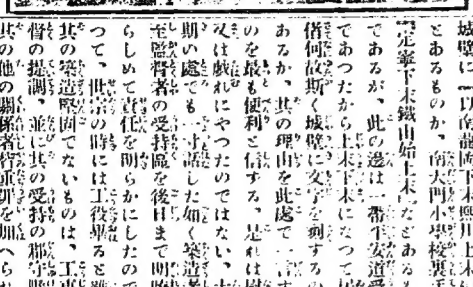 城壁に
とあるものか、南大門小學校裏手
定寧下末鐵山始上末などあるも
であるが、此の邊は一番平安道受
であつたから上末下末になつて居
偖何故斯く城壁に文字を刻するの
あるか、其の理由を此處で一言す
のを最も便利と信する、是れは
又は戯れにやつたのではない、
期の處でも一寸話した如く築造
至監督者の受持區を後日まで明
らしめて責任を明らかにしたので
つて、世宗の時には工役畢ると雖
其の築造堅固でないものは、工事
督の提調、並に其の受持の郡守
其の他の關係者皆重罪を加へられ